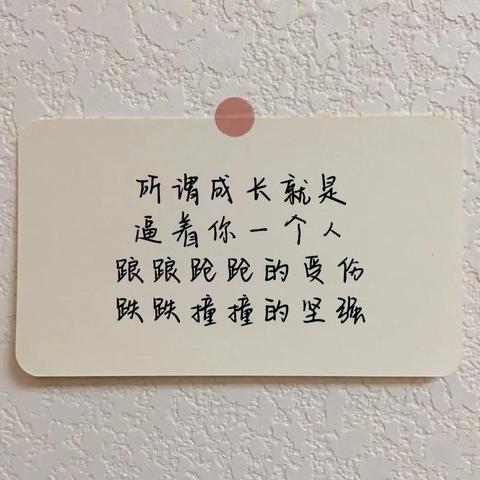 所谓成长就是
逼着你一个人
踉踉跄跄的受伤
跌跌撞撞的坚强